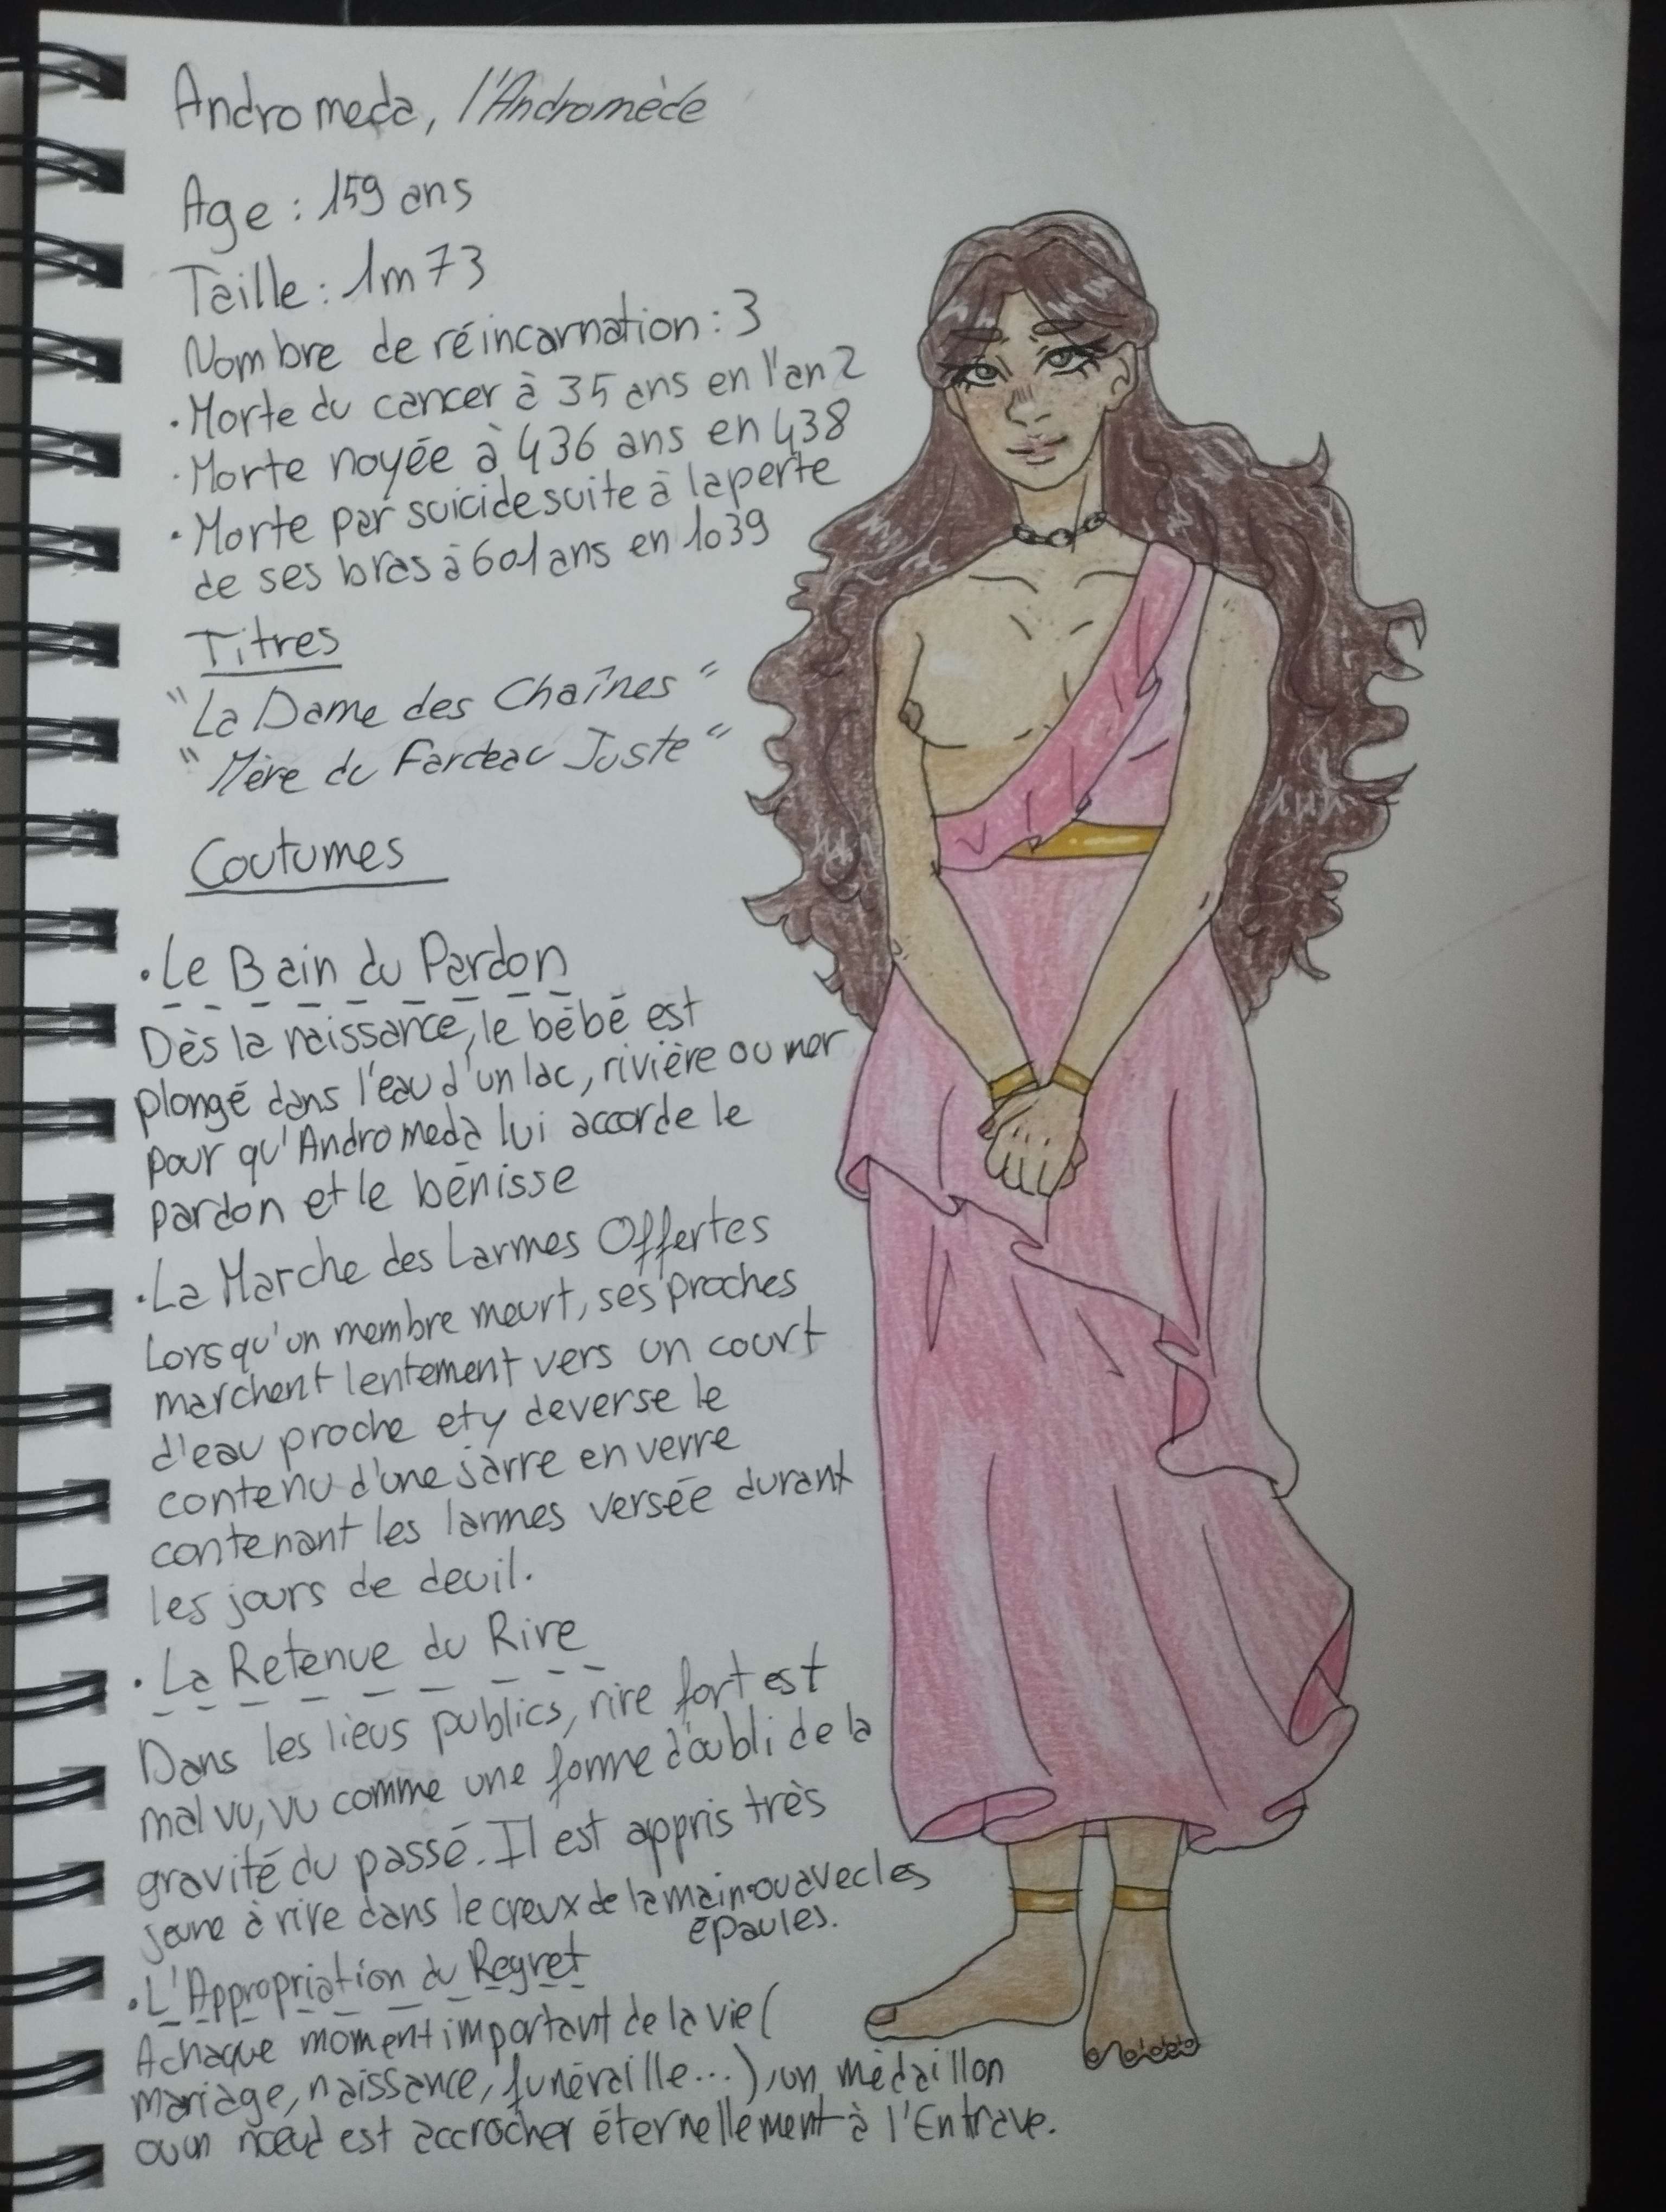 Andromeda, l'Andromède
Age : 159 ans
Taille : 1m73
Nombre de réincarnation : 3
• Morte du cancer à 35 ans en l'an 2
• Morte noyée à 436 ans en 438
• Morte par suicide suite à la perte
de ses bras à 601 ans en 1039
Titres
"La Dame des Chaînes"
"Mère du Fardeau Juste"
Coutumes
• Le Bain du Pardon
Dès la naissance, le bébé est
plongé dans l'eau d'un lac, rivière ou mer
pour qu'Andromeda lui accorde le
pardon et le bénisse
• La Marche des Larmes Offertes
Lorsqu'un membre meurt, ses proches
marchent lentement vers un court
d'eau proche et y deverse le
contenu d'une jarre en verre
contenant les larmes versée durant
les jours de deuil.
• La Retenue du Rire
Dans les lieus publics, rire fort est
mal vu, vu comme une forme d'oubli de la
gravité du passé. Il est appris très
jeune à rire dans le creux de la main ou avec les
épaules.
• L'Appropriation du Regret
A chaque moment important de la vie (
mariage, naissance, funéraille...), un médaillon
ou un nœud est accrocher éternellement à l'Entrave.